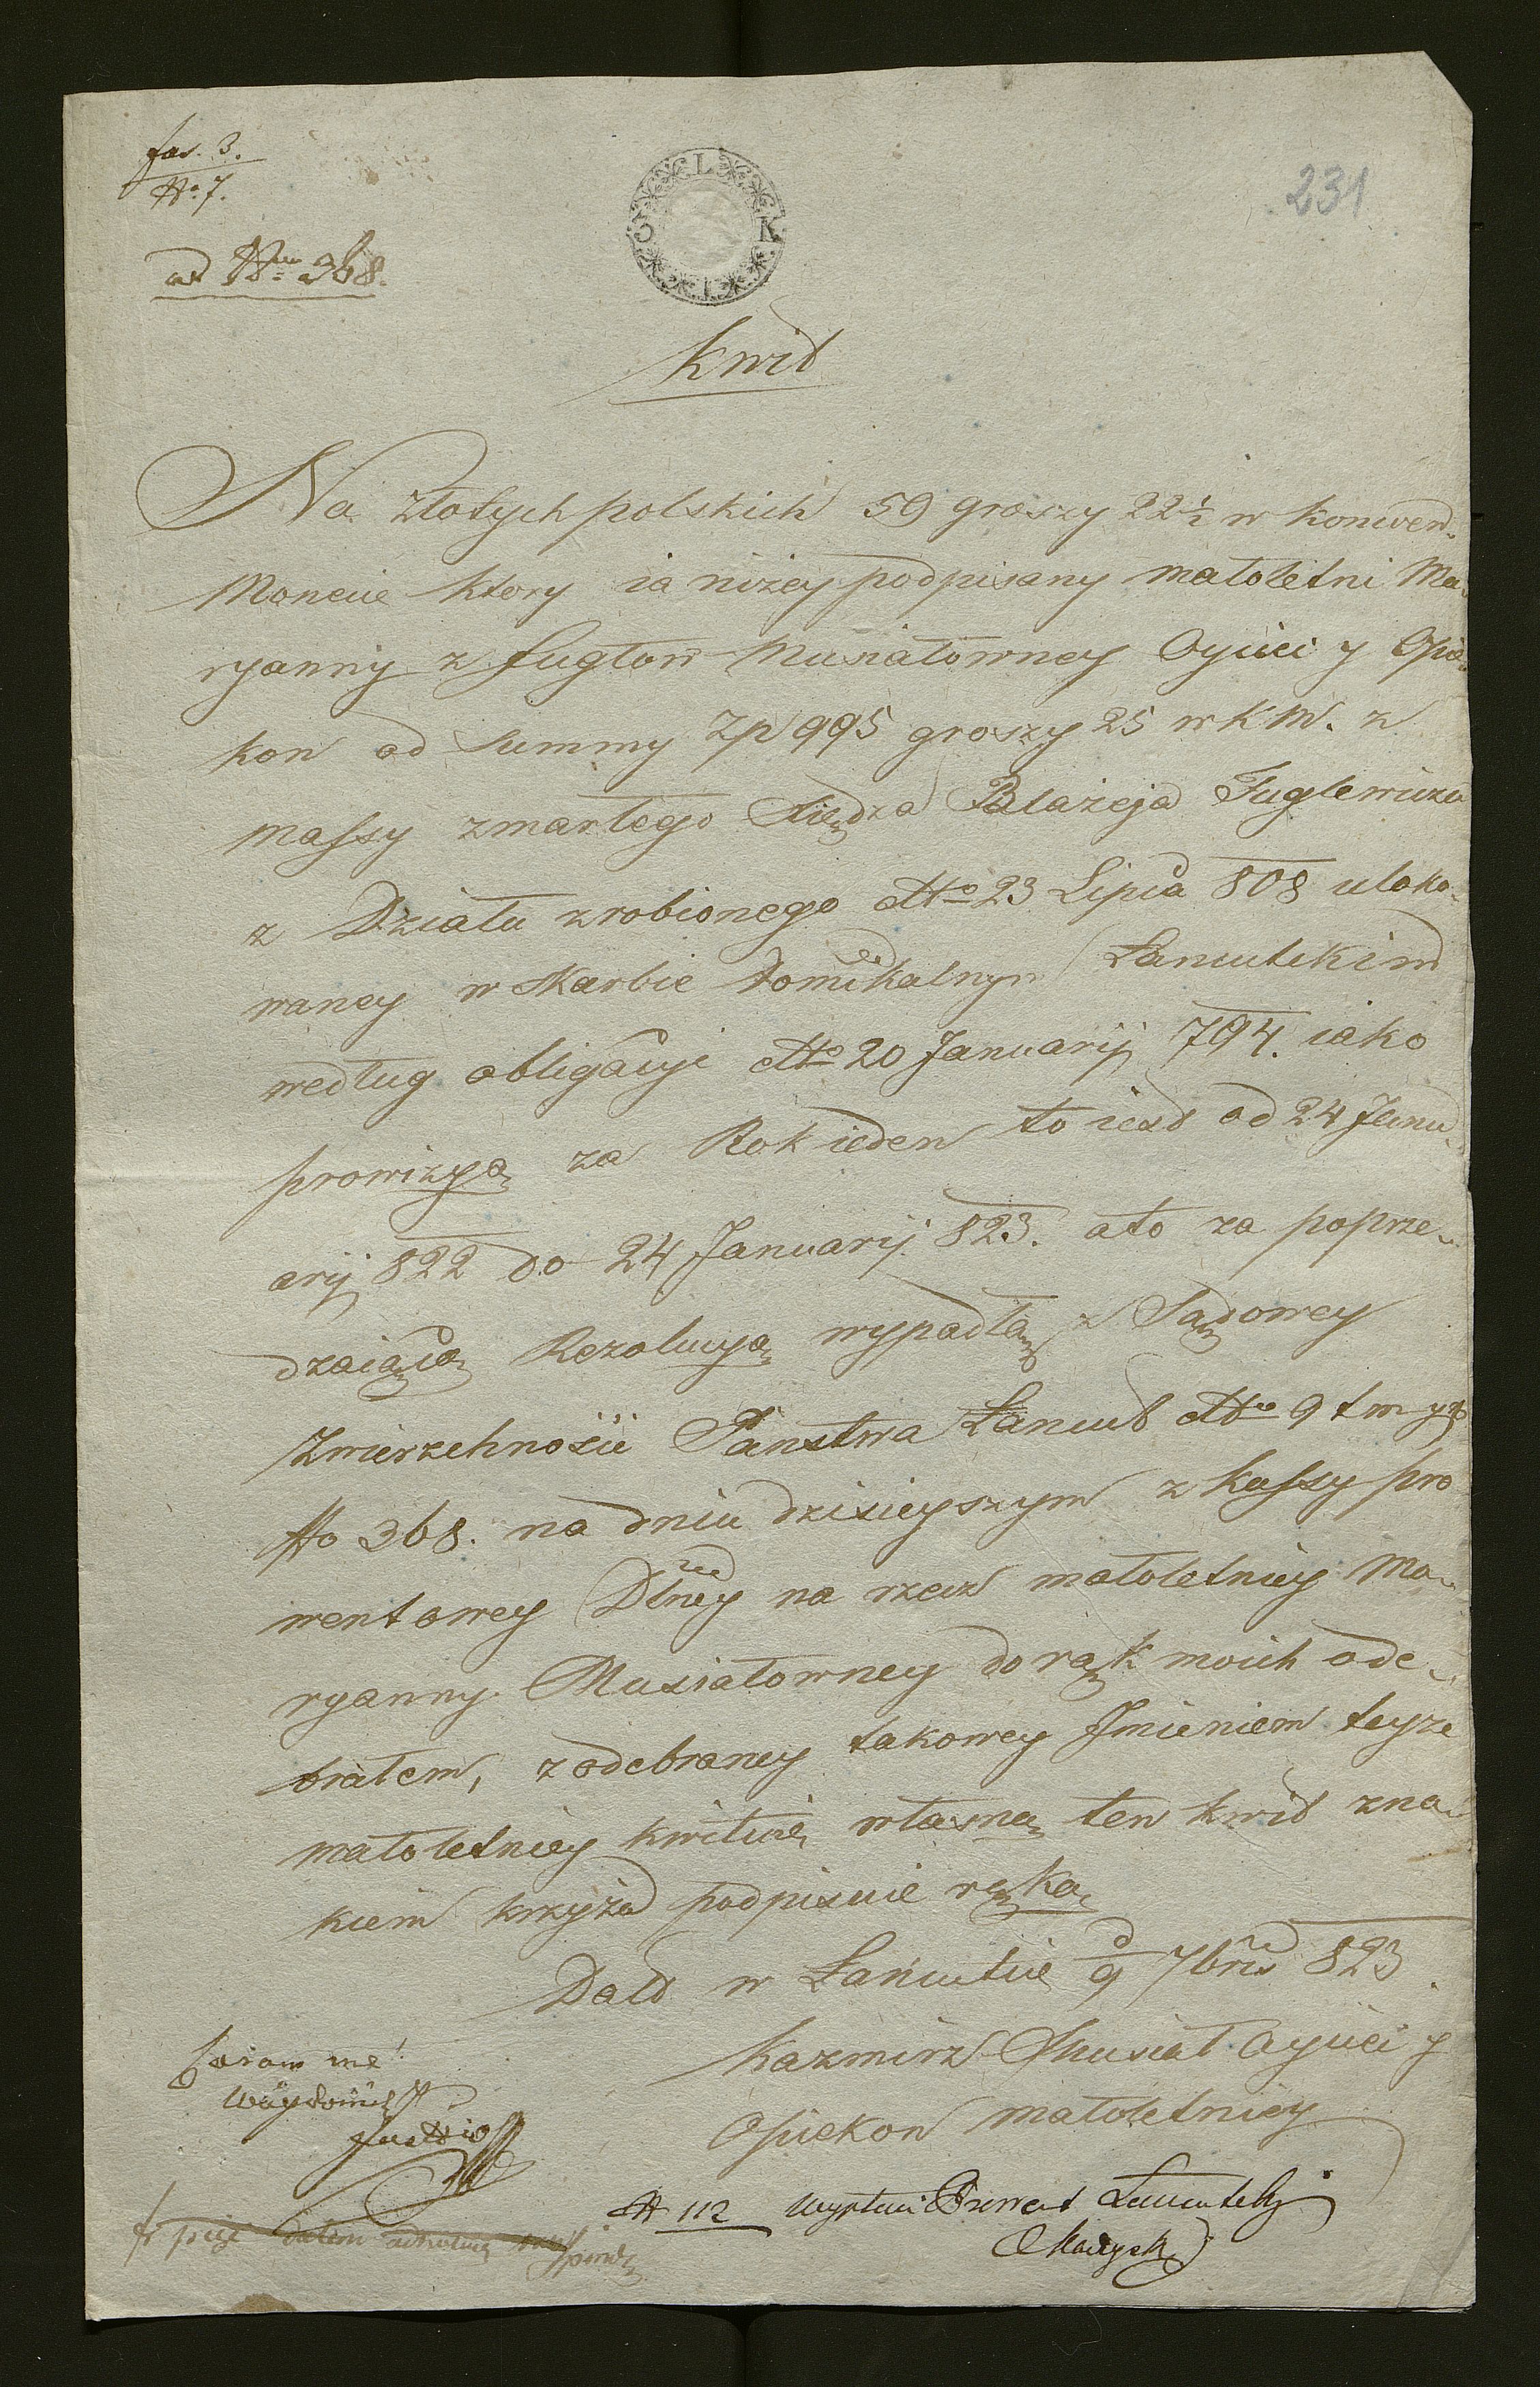 fas. 3.
No. 7.
231
3 L K I
ad Nrm 368.
Kwit
Na złotych polskich 59 groszy 22½ w konwen.
Moneie ktory ia niżey podpisany małoletni Ma
ryanny z Fugłow Musiałowney Oyciec y Opie
kon od Summy Zp 995 groszy 25 w K M. z
massy zmarłego Xiędza Błażeja Fuglewicza
z Działu zrobionego dtto 23 Lipca 808 uloko
waney w Skarbie Łancutskim
według obligacyi dtto 20 Januarij 794. iako
prowizyą za Rok ieden to iest od 24 Janu
arij 822 do 24 Januarij 823. ato za poprze
dzaiącą Rezolucyą wypadłą z Sądowey
Zwierzchności Panstwa Łancut dtto 9 t m y r
No 368. na dniu dzisieyszym z kassy pro
wentowey Dłney na rzecz małoletniey Ma
ryanny Musiałowney do rąk moich ode
brałem, z odebraney takowey Imieniem teyze
małoletniey kwituię własną ten kwit zna
kiem krzyża podpisuie ręką
Datt w Łańcutie d 9 7bris 823
Kazmirz Musiał Oyciec y
Opiekon małoletniey
Coram me
Justic
N 112 Prowent Łancutski